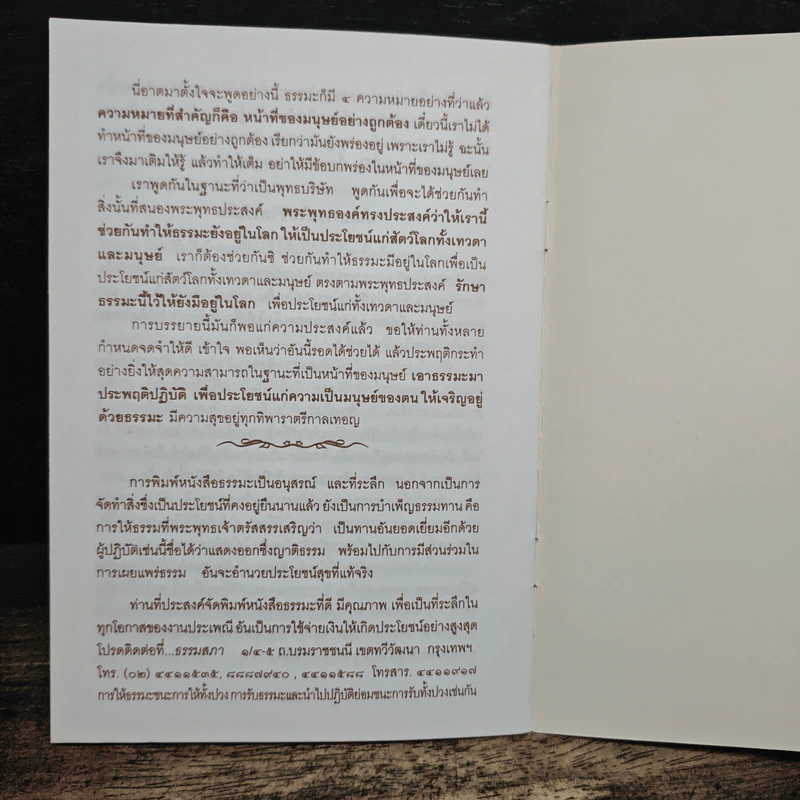 นี่อาตมาตั้งใจจะพูดอย่างนี้ ธรรมะก็มี ๔ ความหมายอย่างที่ว่าแล้ว
ความหมายที่สำคัญก็คือ หน้าที่ของมนุษย์อย่างถูกต้อง เดี๋ยวนี้เราไม่ได้
ทำหน้าที่ของมนุษย์อย่างถูกต้อง เรียกว่ามันยังพร่องอยู่ เพราะเราไม่รู้ ฉะนั้น
เราจึงมาเติมให้รู้ แล้วทำให้เต็ม อย่าให้มีข้อบกพร่องในหน้าที่ของมนุษย์เลย
เราพูดกันในฐานะที่ว่าเป็นพุทธบริษัท พูดกันเพื่อจะได้ช่วยกันทำ
สิ่งนั้นที่สนองพระพุทธประสงค์ พระพุทธองค์ทรงประสงค์ว่าให้เรานี้
ช่วยกันทำให้ธรรมะยังอยู่ในโลก ให้เป็นประโยชน์แก่สัตว์โลกทั้งเทวดา
และมนุษย์ เราก็ต้องช่วยกันซิ ช่วยกันทำให้ธรรมะมีอยู่ในโลกเพื่อเป็น
ประโยชน์แก่สัตว์โลกทั้งเทวดาและมนุษย์ ตรงตามพระพุทธประสงค์ รักษา
ธรรมะนี้ไว้ให้ยังมีอยู่ในโลก เพื่อประโยชน์แก่ทั้งเทวดาและมนุษย์
การบรรยายนี้มันก็พอแก่ความประสงค์แล้ว ขอให้ท่านทั้งหลาย
กำหนดจดจำให้ดี เข้าใจ พอเห็นว่าอันนี้รอดได้ช่วยได้ แล้วประพฤติกระทำ
อย่างยิ่งให้สุดความสามารถในฐานะที่เป็นหน้าที่ของมนุษย์ เอาธรรมะมา
ประพฤติปฏิบัติ เพื่อประโยชน์แก่ความเป็นมนุษย์ของตน ให้เจริญอยู่
ด้วยธรรมะ มีความสุขอยู่ทุกทิพาราตรีกาลเทอญ
การพิมพ์หนังสือธรรมะเป็นอนุสรณ์ และที่ระลึก นอกจากเป็นการ
จัดทำสิ่งซึ่งเป็นประโยชน์ที่คงอยู่ยืนนานแล้ว ยังเป็นการบำเพ็ญธรรมทาน คือ
การให้ธรรมที่พระพุทธเจ้าตรัสสรรเสริญว่า เป็นทานอันยอดเยี่ยมอีกด้วย
ผู้ปฏิบัติเช่นนี้ชื่อได้ว่าแสดงออกซึ่งญาติธรรม พร้อมไปกับการมีส่วนร่วมใน
การเผยแพร่ธรรม อันจะอำนวยประโยชน์สุขที่แท้จริง
ท่านที่ประสงค์จัดพิมพ์หนังสือธรรมะที่ดี มีคุณภาพ เพื่อเป็นที่ระลึกใน
ทุกโอกาสของงานประเพณี อันเป็นการใช้จ่ายเงินให้เกิดประโยชน์อย่างสูงสุด
โปรดติดต่อที่...ธรรมสภา ๑/๔-๕ ถ.บรมราชชนนี เขตทวีวัฒนา กรุงเทพฯ
โทร. (๐๒) ๔๔๑๑๕๓๕, ๘๘๘๗๙๔๐ , ๔๔๑๑๕๘๘ โทรสาร. ๔๔๑๑๙๑๗
การให้ธรรมะชนะการให้ทั้งปวง การรับธรรมะและนำไปปฏิบัติย่อมชนะการรับทั้งปวงเช่นกัน